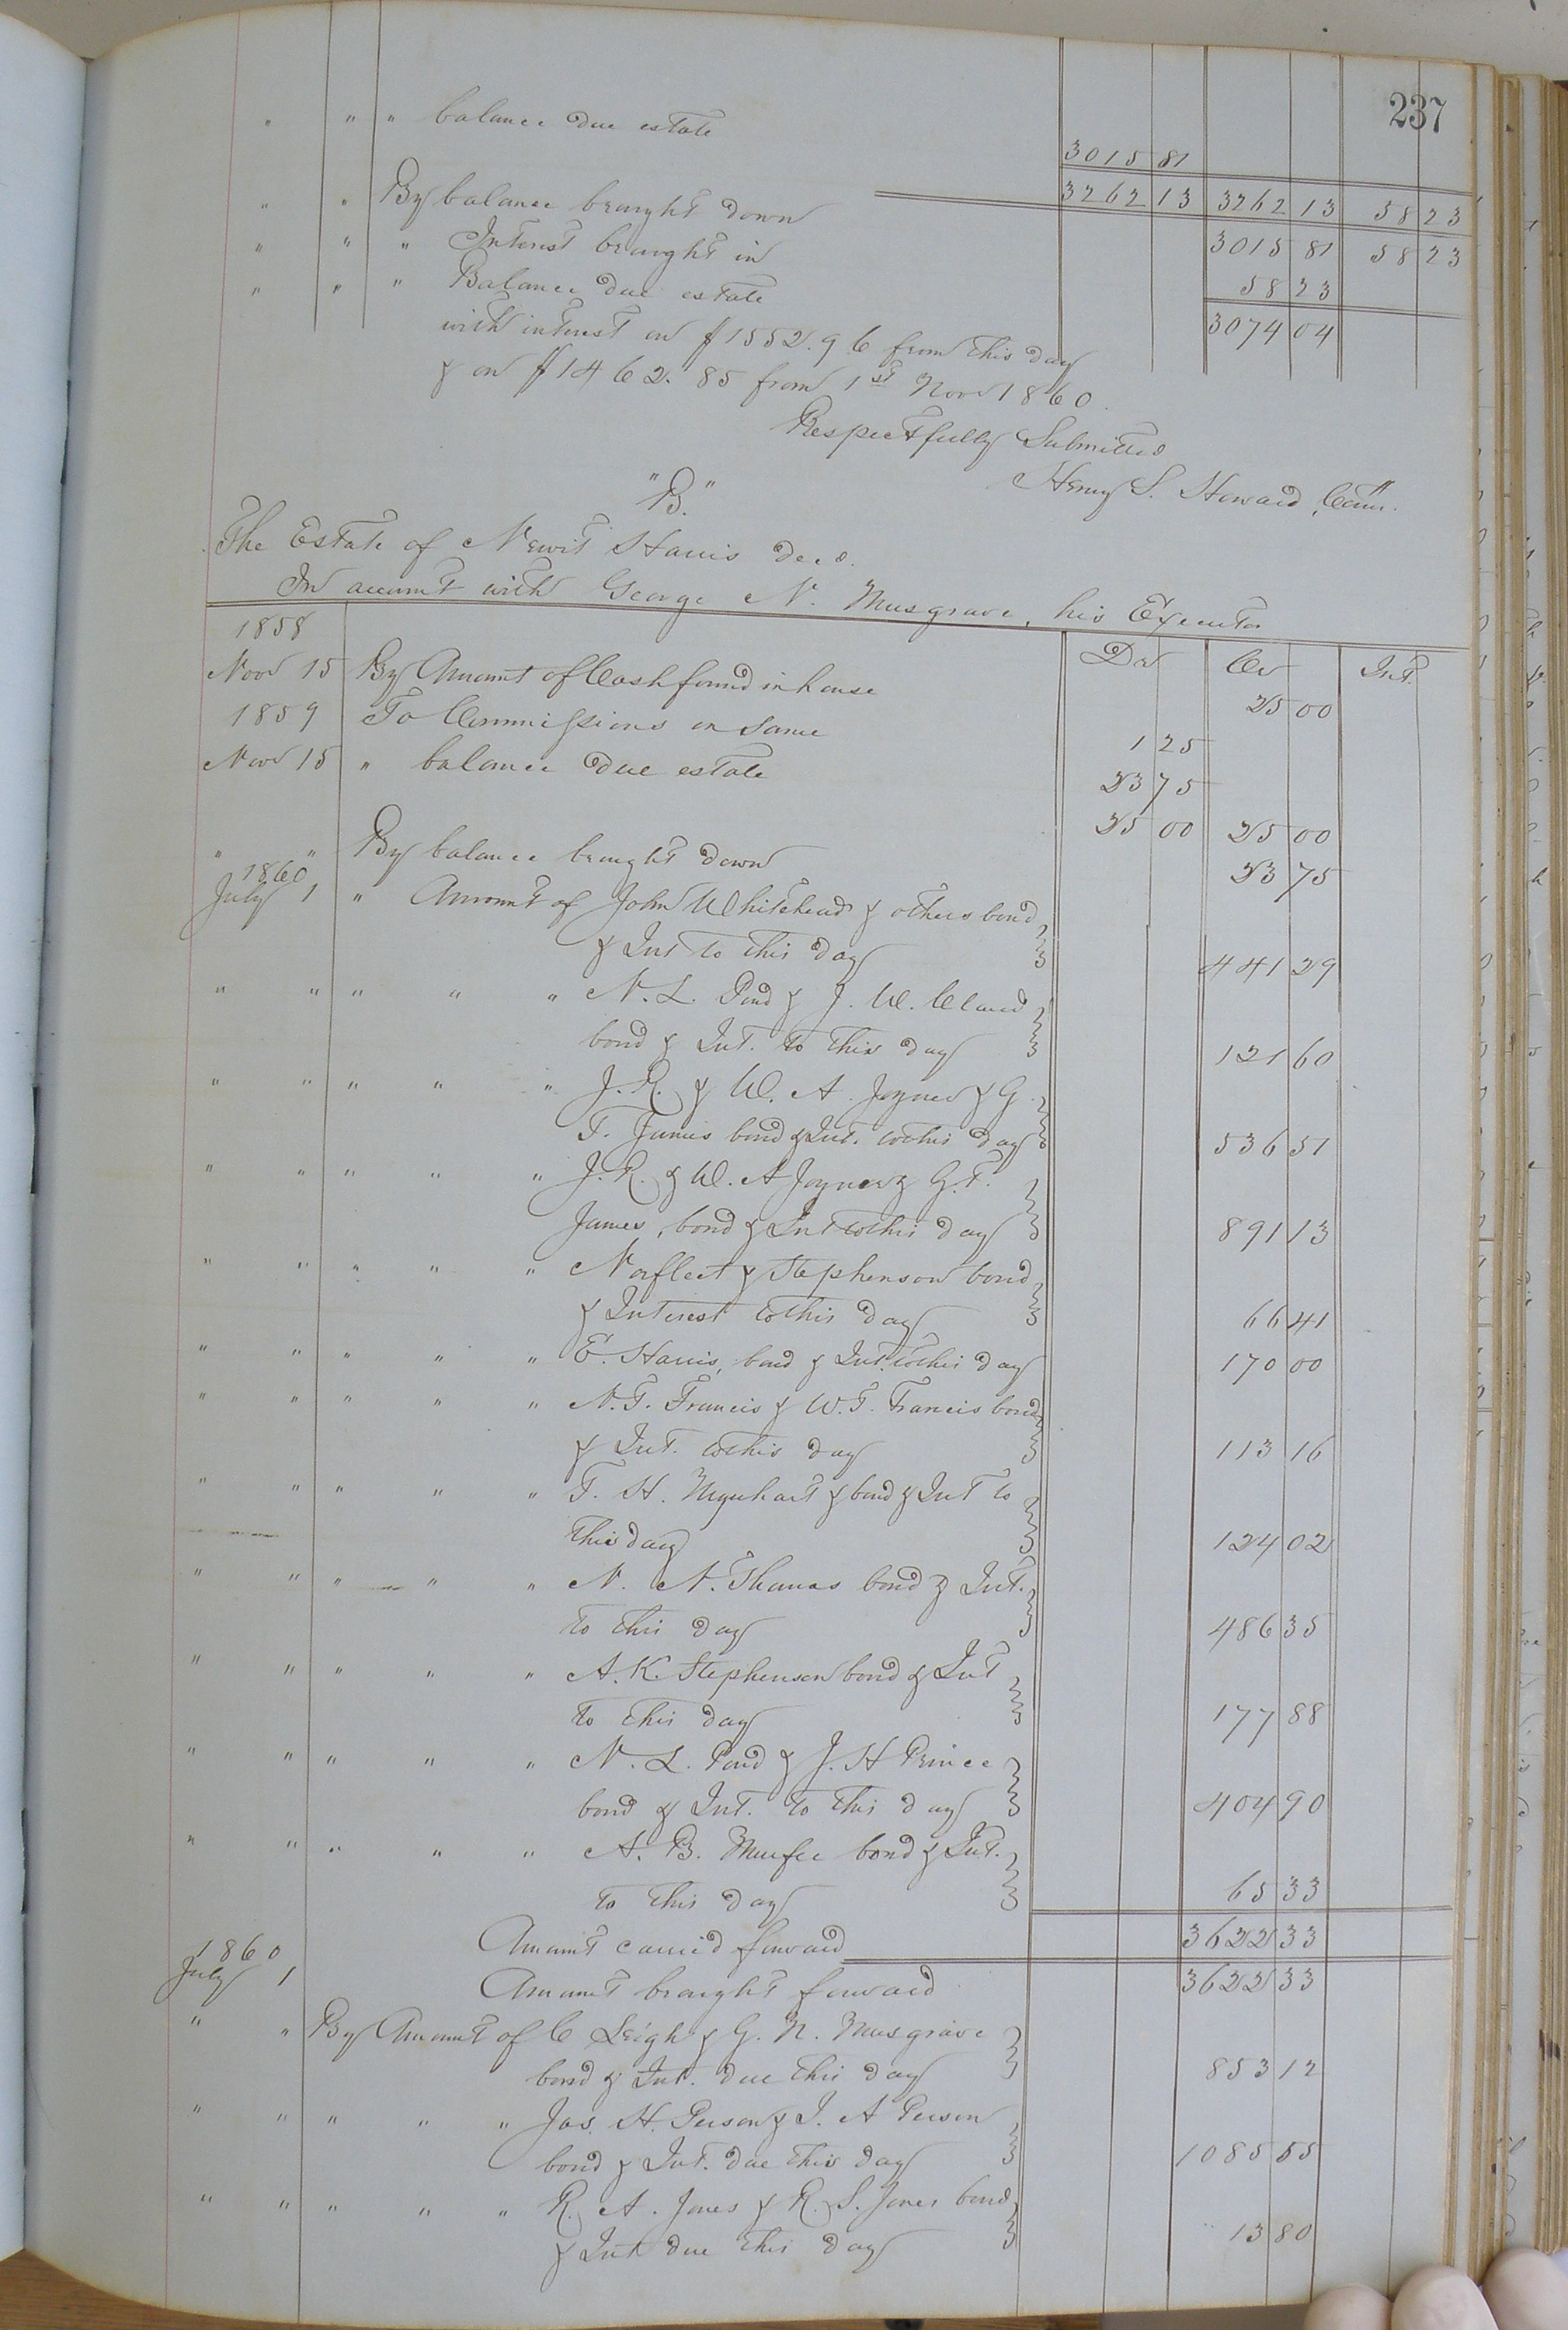 237
" " " balance due estate 3015 81
3262 13 3262 13 58 23
" " By balance brought down 3015 81 58 23
" " " Interest brought in 58 23
" " " Balance due estate 3074 04
with interest on $1552.96 from this day
& on $1462.85 from 1st Novr 1860.
Respectfully Submitted
Henry S. Howard, Comr.
"B."
The Estate of Newit Harris decd.
In account with George N. Musgrave, his Executor
1858 Dr Cr Int.
Novr 15 By Amount of Cash found in house 25 00
1859 To Commissions on same 1 25
Novr 15 " balance due estate 23 75
25 00 25 00
" " By balance brought down 23 75
1860
July 1 " Amount of John Whitehead & others bond
& Int to this day 441 29
" " " " " N. L. Pond & J. W. Claud
bond & Int. to this day 121 60
" " " " " J. R. & W. A. Joyner & G.
T. James bond & Int. to this day 536 51
" " " " " J. R. & W. A Joyner & G. T.
James, bond & Int to this day 891 13
" " " " " Norfleet & Stephenson bond
& Interest to this day 66 41
" " " " " E. Harris, bond & Int. to this day 170 00
" " " " " N. T. Francis & W. T. Francis bond
& Int. to this day 113 16
" " " " " T. H. Urquhart & bond & Int to
this day 124 02
" " " " " N. N. Thomas bond & Int.
to this day 486 35
" " " " " A. K. Stephenson bond & Int
to this day 177 88
" " " " " N. L. Pond & J. H Prince
bond & Int. to this day 404 90
" " " " " A. B. Murfee bond & Int.
to this day 65 33
Amount carried forward 3622 33
1860
July 1 Amount brought forward 3622 33
" " By Amount of C Leigh & G. N. Musgrave
bond & Int. due this day 853 12
" " " " " Jas. H. Person & J. A Person
bond & Int. due this day 1085 55
" " " " " R. A. Jones & R. S. Jones bond
& Int due this day 13 80